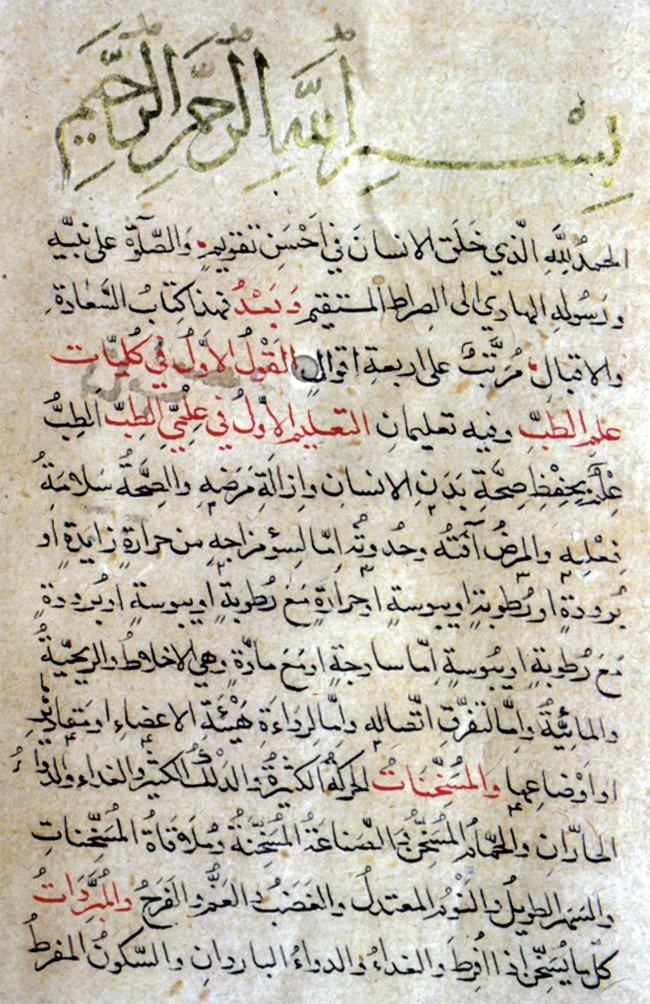 بِسْمِ اللّٰهِ الرَّحْمٰنِ الرَّحِيمِ
الحمدُ لِلّٰهِ الَّذي خَلَقَ الانسانَ في اَحْسَنِ تقويمٍ والصَّلوةُ على نبيِّه
ورَسُولِه الهادي الى الصِراطِ المستقيمِ وَبَعْدُ فهذا كتابُ السَّعَادةِ
والاقبالِ مُرَتَّبٌ على اربعةِ اقوالٍ القَوْلُ الاوَّلُ في كُلِّيات
علمِ الطبِّ وفيه تعليمانِ التعليم الاوَّلُ في عِلْمَيِ الطبِّ الطِبُّ
عِلمٌ بحِفْظِ صِحَّةِ بَدَنِ الانسانِ وازالَةِ مَرَضِهِ والصِّحَّةُ سَلامَةُ
فِعْلِهِ والمَرضُ آفَتُهُ وحُدوثُه اِمّا لِسُوءِ مزاجِهِ من حرارةٍ زايدةٍ او
بُرودةٍ او رُطوبةٍ او يبوسةٍ او حرارةٍ مَعَ رُطوبةٍ او يبوسةٍ او بُرودةٍ
مَعَ رُطوبةٍ او يبُوسةٍ اِمّا سارجةٍ او مَعَ مادَّةٍ وهي الاخلاطُ والريحيّةُ
والمائيَّةُ وامّا لتفرّقِ اتّصالِهِ وامّا لِرداءَةِ هَيْئَةِ الاعضاءِ او مقاديرِها
او اوْضاعِها والمُسخِّناتُ الحركةُ الكثيرةُ والدَلكُ الكثيرُ والغداء والدواءُ
الحارَّانِ والحمّامُ المُسخِّنُ والصِّناعَةُ المُسَخِّنَةُ ومُلاقاةُ المُسَخِّناتِ
والسهرُ الطويلُ والنَّومُ المعتدلُ والغَضَبُ والغَمُّ والفَرَحُ والمُبَرِّدَاتُ
كلُّ ما يُسخِّنُ اذا افْرِطَ والغداءُ والدواءُ الباردانِ والسّكونُ المفرطُ